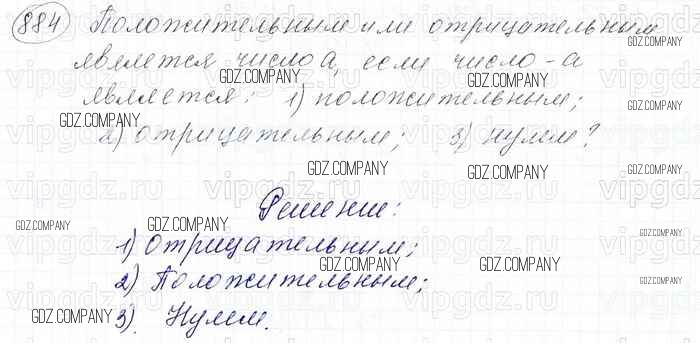 884 Положительным или отрицательным
является число а, если число -а
является: 1) положительным;
2) отрицательным; 3) нулем?
Решение:
1) Отрицательным;
2) Положительным;
3) Нулем.
GDZ.COMPANY
GDZ.COMPANY
GDZ.COMPANY
GDZ.COMPANY
GDZ.COMPANY
GDZ.COMPANY
GDZ.COMPANY
GDZ.COMPANY
GDZ.COMPANY
GDZ.COMPANY
GDZ.COMPANY
vipgdz.ru